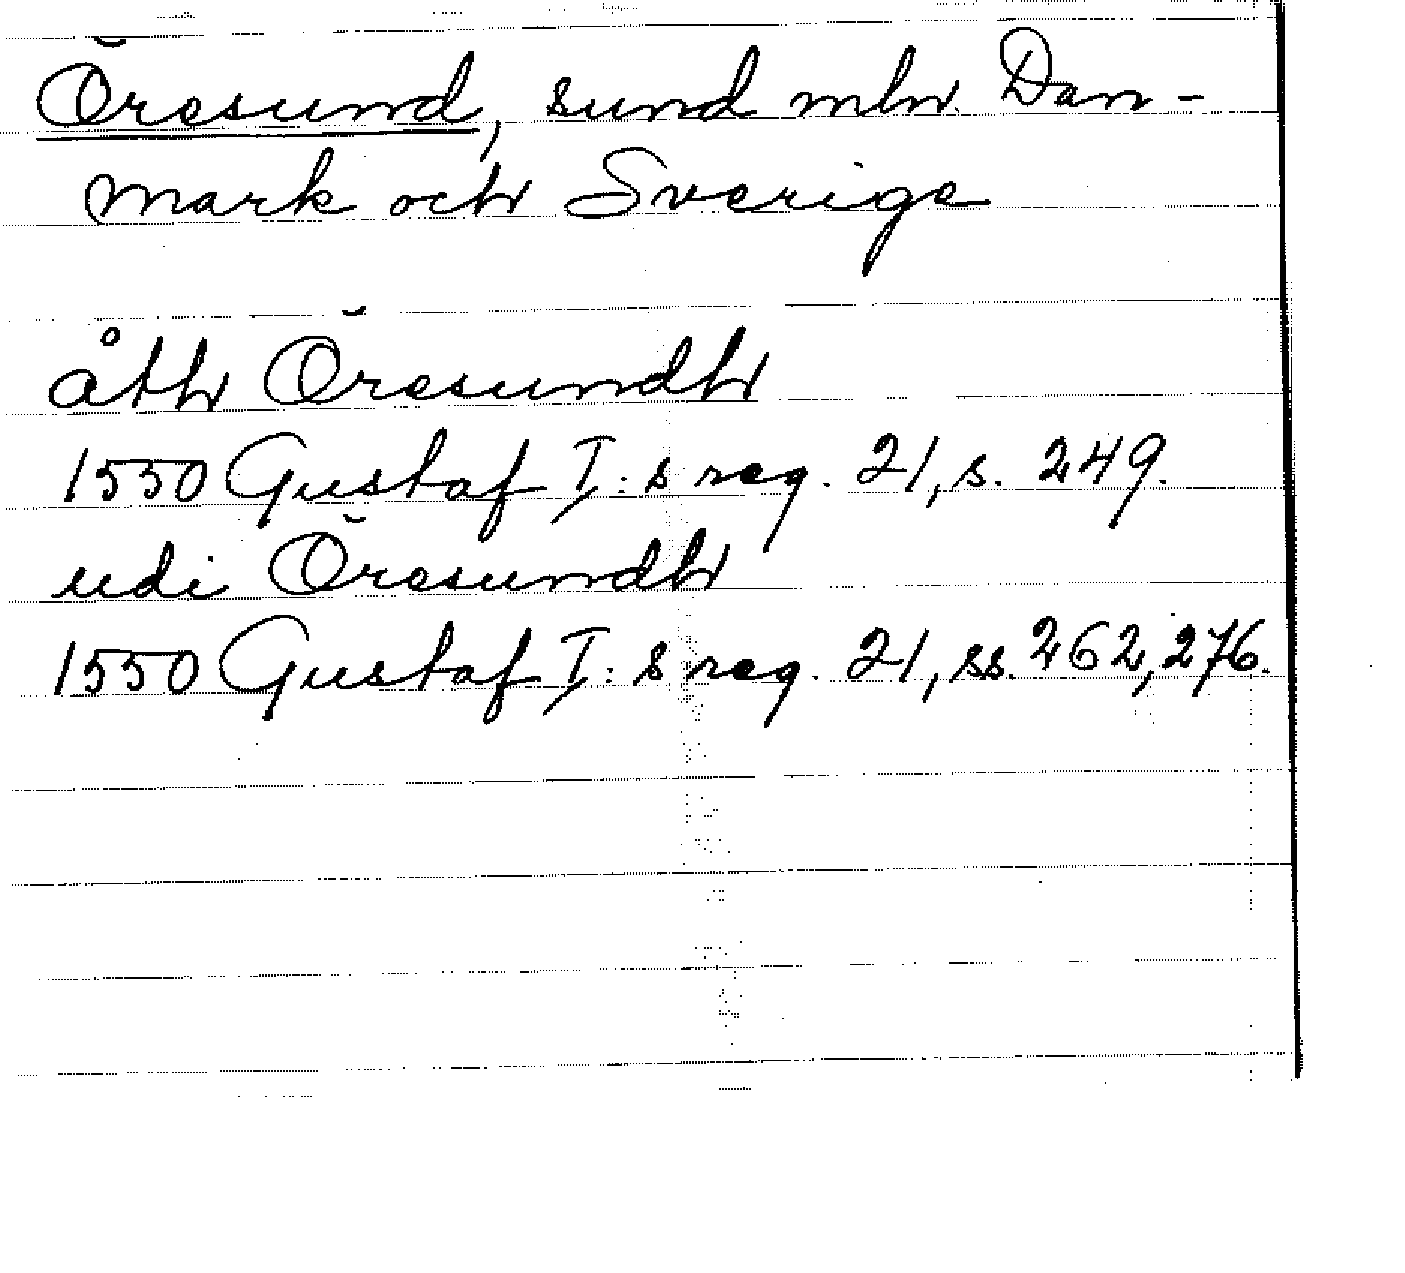 Öresund, sund mln. Dan-
mark och Sverige
åth Öresundh
1550 Gustaf I:s reg. 21, s. 249.
udi Öresundh
1550 Gustaf I:s reg. 21, ss. 262, 276.